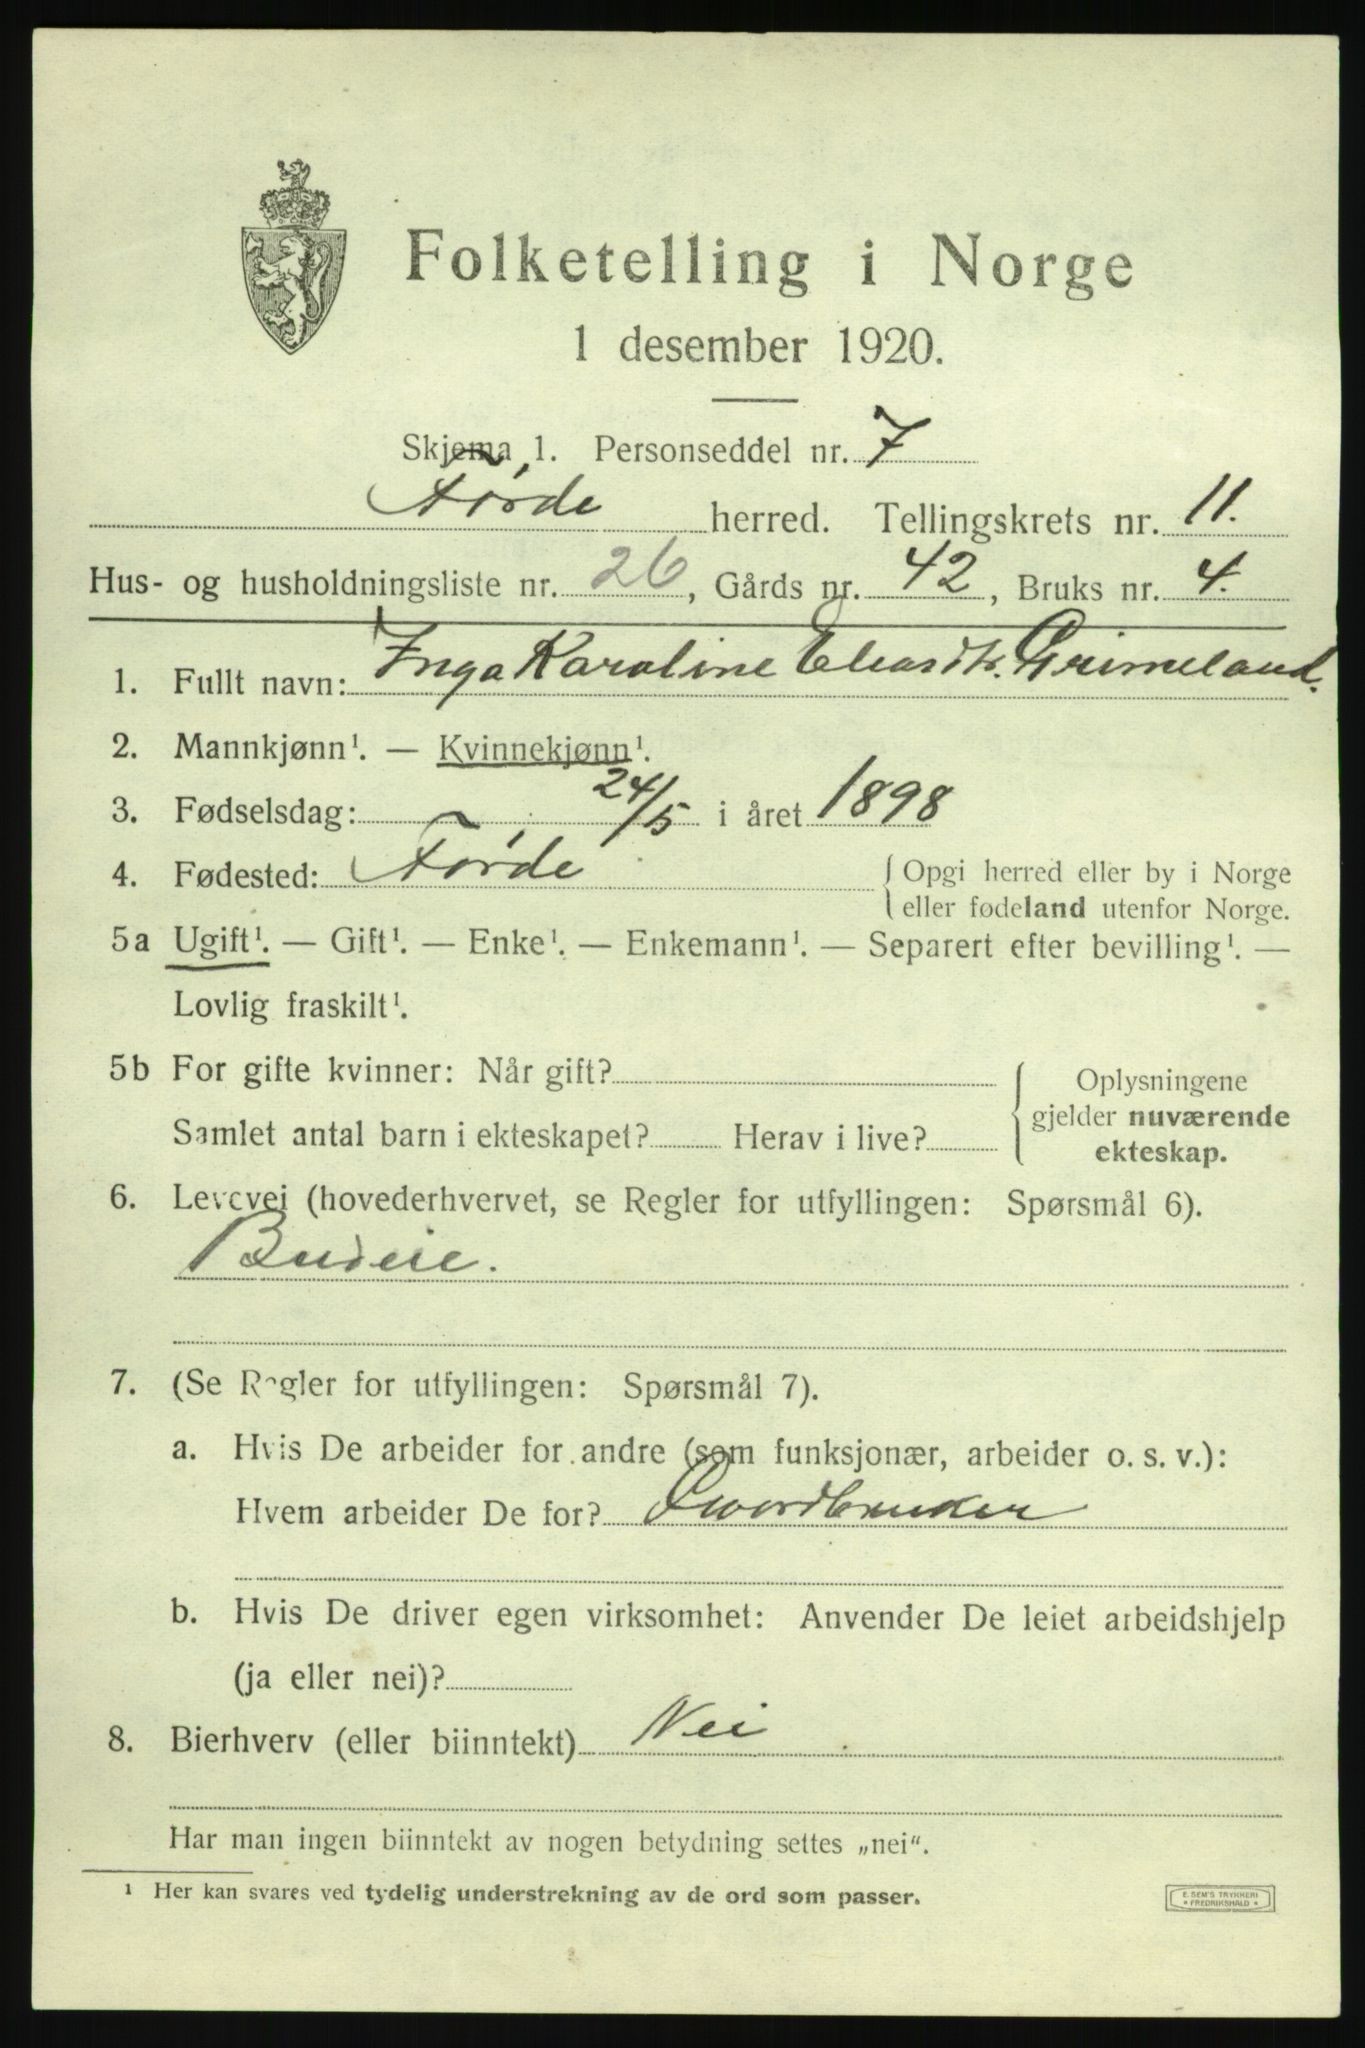 Folketelling i Norge
1 desember 1920.
Skjema 1. Personseddel nr. 7
Førde herred. Tellingskrets nr. 11.
Hus- og husholdningsliste nr. 26, Gårds nr. 42, Bruks nr. 4.
1. Fullt navn: Inga Karoline Eliasdtr. Grimeland.
2. Mannkjønn¹. — Kvinnekjønn¹.
3. Fødselsdag: 24/5 i året 1898
4. Fødested: Førde { Opgi herred eller by i Norge
eller fødeland utenfor Norge.
5a Ugift¹. — Gift¹. — Enke¹. — Enkemann¹. — Separert efter bevilling¹. —
Lovlig fraskilt¹.
5b For gifte kvinner: Når gift? { Oplysningene
gjelder nuværende
Samlet antal barn i ekteskapet? Herav i live?
ekteskap.
6. Levevei (hovederhvervet, se Regler for utfyllingen: Spørsmål 6).
Budeie.
7. (Se Regler for utfyllingen: Spørsmål 7).
a. Hvis De arbeider for andre (som funksjonær, arbeider o. s. v.):
Hvem arbeider De for? Gaardbruker
b. Hvis De driver egen virksomhet: Anvender De leiet arbeidshjelp
(ja eller nei)?
8. Bierhverv (eller biinntekt) Nei
Har man ingen biinntekt av nogen betydning settes „nei“.
¹ Her kan svares ved tydelig understrekning av de ord som passer.
E. SEM'S TRYKKERI
* FREDRIKSHALD *